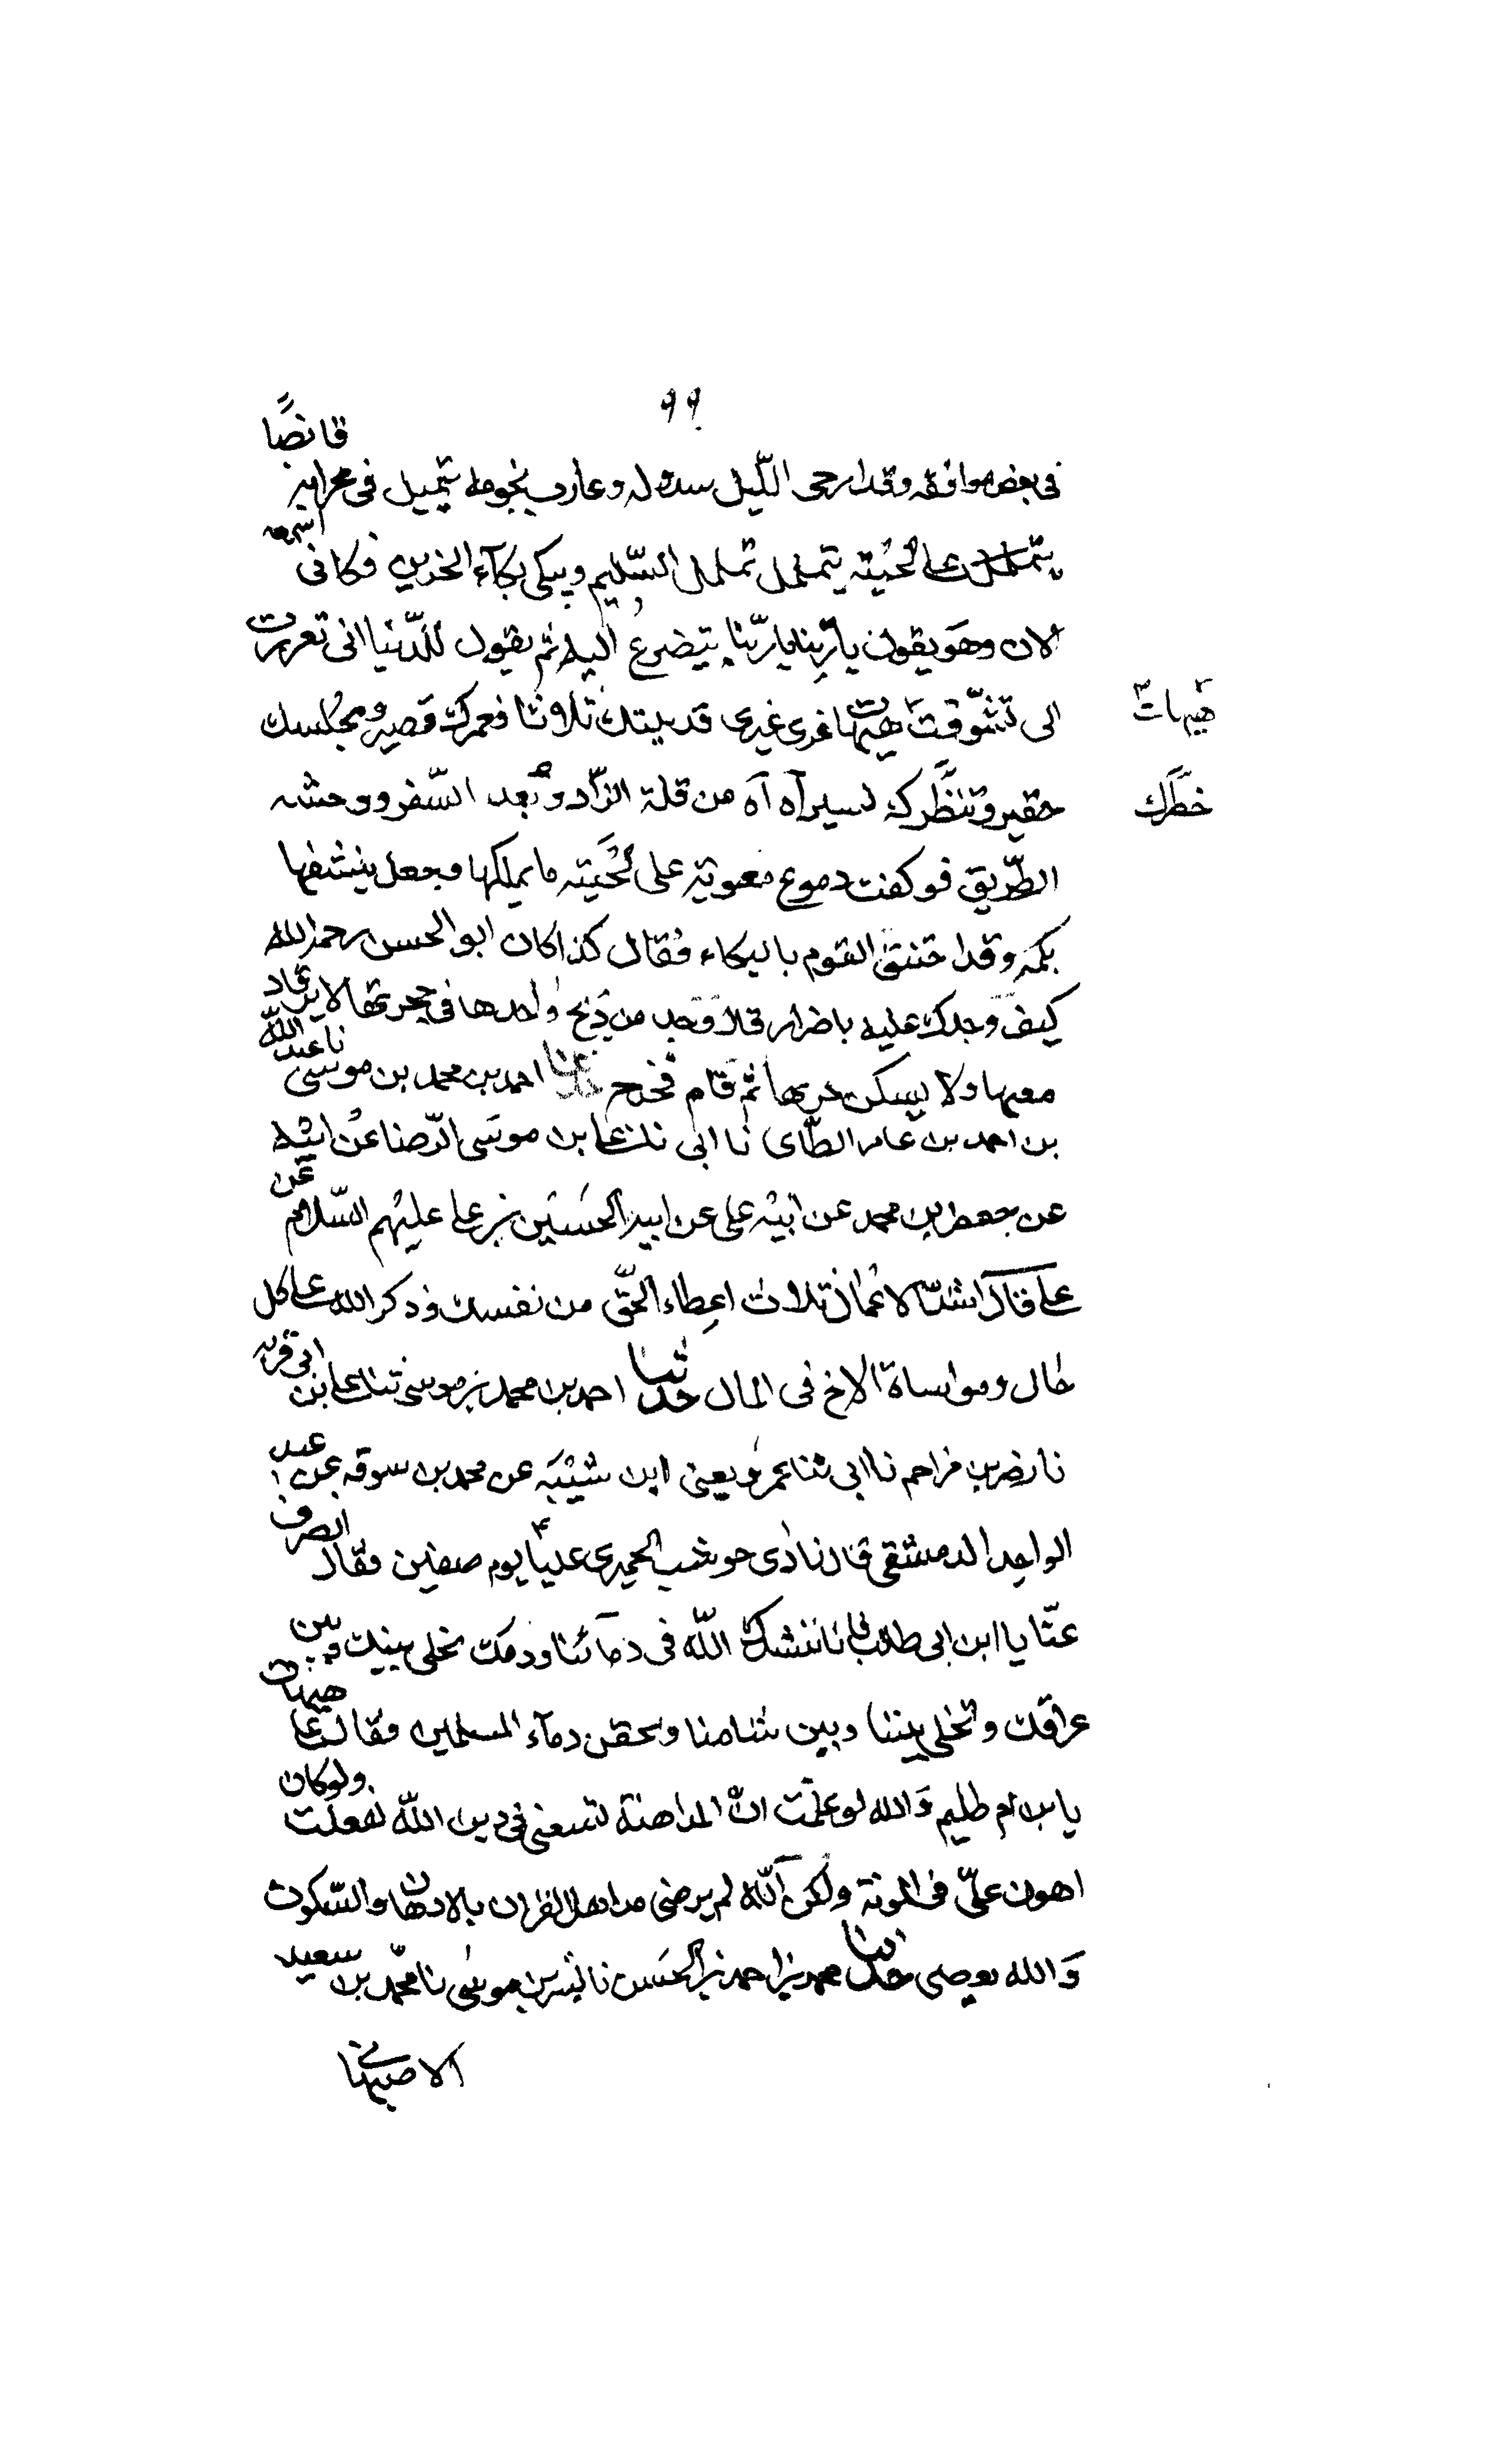 ٩٩
في بعض مواقفه وقد ارخى الليل سدوله وغارت نجومه يتميل في محرابه قابضًا
على لحيته يتململ تململ السّليم ويبكى بكآء الحزين فكانى اسمعه
الان وهو يقول يا ربنا يا ربّنا يتضرع اليه ثم يقول للدّنيا انى تعررت
الى تشوّفت هيهات غرى غيرى قد بتتك ثلاثا فعمرك قصير ومجلسك
هيهات
حقير وتنظرك يسير آه آه من قلة الزّاد وبُعد السّفر ووحشه
خطرك
الطّريق فوكفت دموع معوية على لحيته ما يملكها وجعل ينشفها
بكمه وقد اختنق القوم بالبكاء فقال كذا كان ابو الحسن رحمه الله
كيف وجدك عليه يا ضرار قال وجد من ذبح واحدها في حجرتها لا يرقا
دمعها ولا يسكن حزنها ثم قام فخرج حدثنا احمد بن محمد بن موسى نا عبد الله
بن احمد بن عامر الطّاى نا ابى نا على بن موسى الرّضا عن ابيه
عن جعفر بن محمد عن ابيه على عن ابيه الحسين بن على عليهم السّلام عن
على قال اشدّ الاعمال ثلاث اعطاء الحقّ من نفسك وذكر الله على كل
حال ومواساة الاخ في المال حدثنا احمد بن محمد بن موسى ثنا على بن ابى قربه
نا نصر بن مزاحم نا ابى ثنا عمرو يعنى ابن شيبه عن محمد بن سوقه عن عبد
الواحد الدمشقى قال نادى حوشب الحميرى عليا يوم صفين فقال انصرف
عنّا يا ابن ابى طالب فانا ننشدك اللّه في دمآئنا ودمك نخلى بينك وبين
عراقك وتخلى بيننا وبين شامنا وتحقن دمآء المسلمين فقال على هيهات
يا بن ام ظليم والله لو علمت انّ المداهنة تسعنى في دين اللّه لفعلت ولكان
اهون علىّ في المونة ولكن اللّه لم يرض من اهل القران بالادهان والسّكوت
والله يعصى حدثنا محمد بن احمد بن الحسن نا بشر بن موسى نا محمّد بن سعيد
الاصبهانى